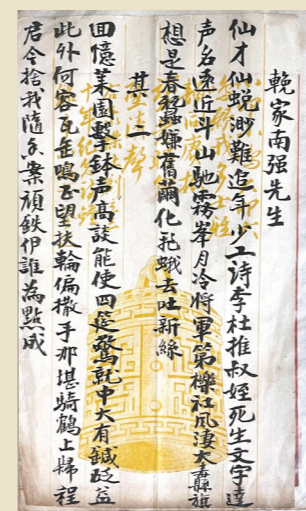 輓家南强先生
仙才仙蜕渺難追年少工詩李杜推叔姪死生文字達
声名遠近斗山馳霧峯月冷將軍第櫟社風淒大纛旗
想是春蠶嫌舊繭化飛蛾去吐新絲
其二
回憶萊園擊鉢声高談能使四筵驚就中大有鍼砭益
此外何容瓦缶鳴正望扶輪偏撒手那堪騎鶴上歸程
君今捨我隨頑鉄伊誰為點成